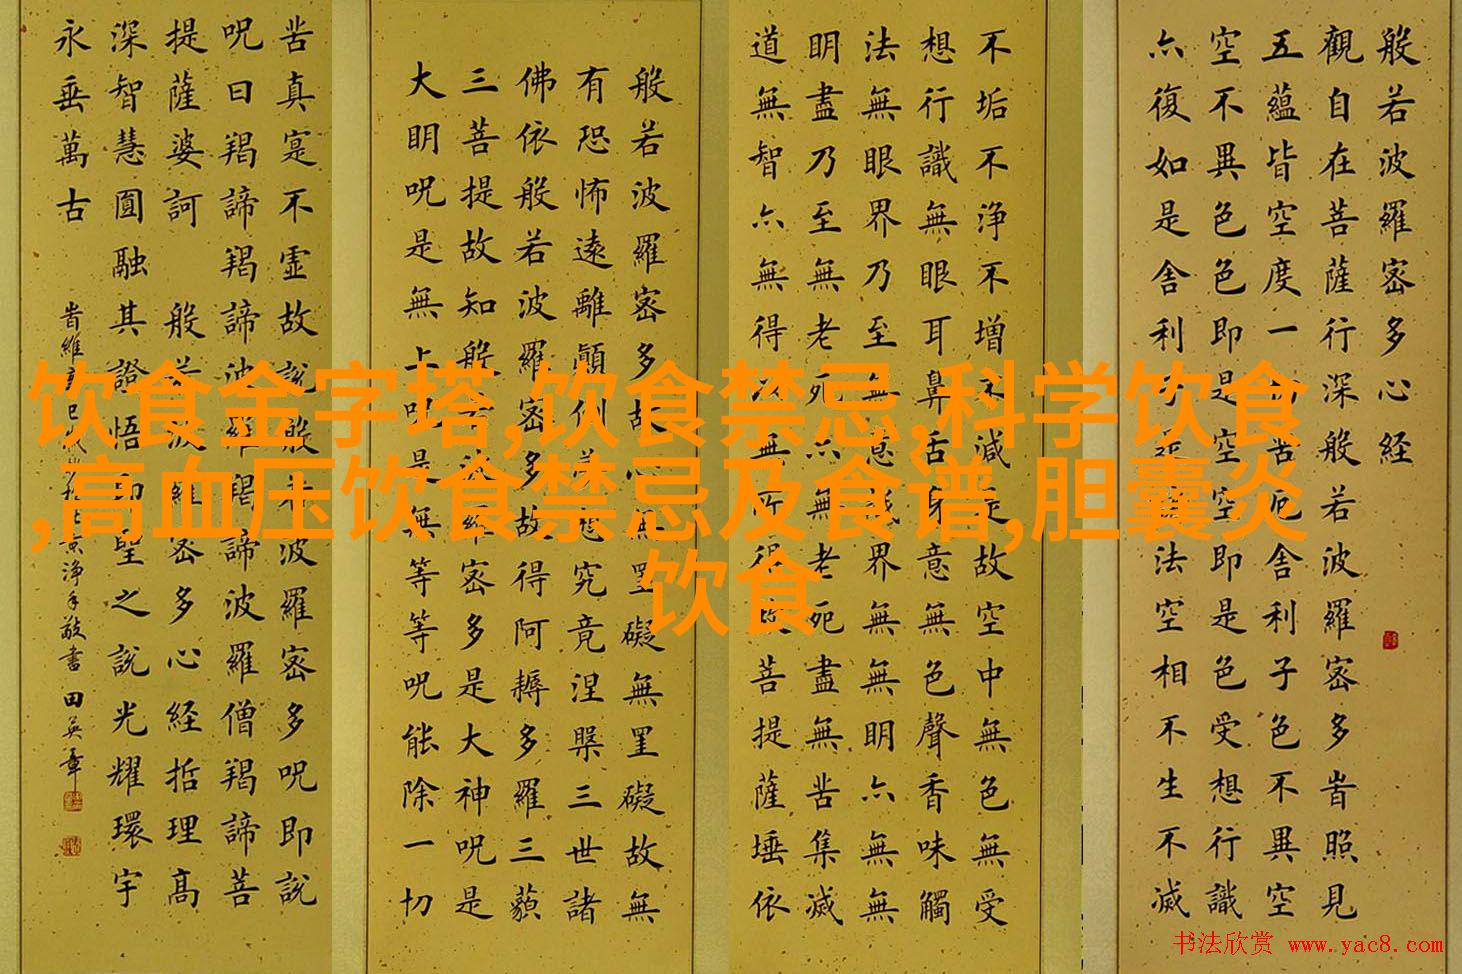 般若波羅密多心経
觀自在菩薩行深般若波羅密多旹照見
五蘊皆空度一切苦厄舍利子色不異空
空不異色色即是空空即是色受想行識
亦復如是舍利子法空相不生不滅
不垢不浄不增不減是故空中無色無受
想行識無眼耳鼻舌身意無色聲香味觸
法無眼界乃至無意識界無無明亦無無
明盡乃至無老死亦無老死盡無苦集滅
道無智亦無得以無所得故菩提薩埵依
般若波羅密多故心無罣礙無罣礙故無
有恐怖遠離顛倒夢想究竟涅槃三世諸
佛依般若波羅密多故得阿耨多羅三藐
三菩提故知般若波羅密多是大神呪是
大明呪是無上呪是無等等呪能除一切
苦真寔不虛故說般若波羅密多呪即說
呪曰羯諦羯諦波羅羯諦波羅僧羯諦菩
提薩婆訶 般若波羅密多心経括理高
深智慧圓融其證悟而聖之說光耀環宇
永垂萬古
旹維巳京浄手敬書田英章
饮食金字塔,饮食禁忌,科学饮食
,高血压饮食禁忌及食谱,胆囊炎
饮食
书法欣赏 www.yac8.com